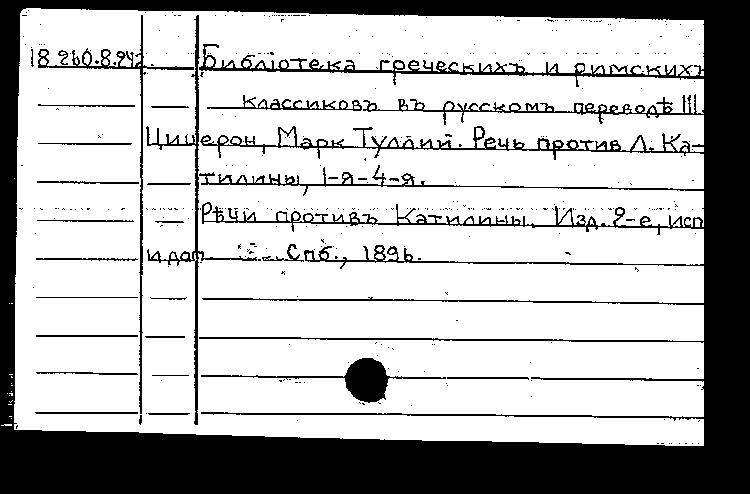 18.260.8.242. Библіотека греческихъ и римскихъ
классиковъ въ русскомъ переводѣ III.
Цицерон, Марк Туллий. Речь против Л. Ка-
тилины, 1-я-4-я.
Рѣчи противъ Катилины. Изд. 2-е, исп
и доп. Спб., 1896.